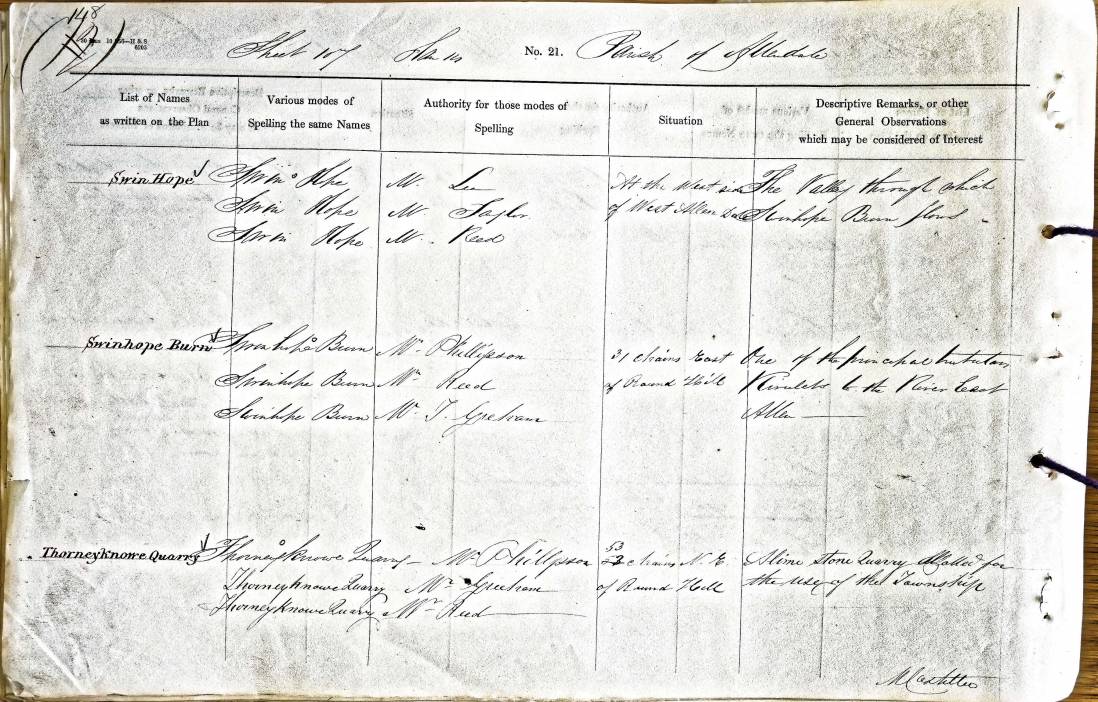 148
Sheet 107 No. 21. Parish of Allendale
List of Names as written on the Plan
Various modes of Spelling the same Names
Authority for those modes of Spelling
Situation
Descriptive Remarks, or other General Observations which may be considered of Interest
Swin Hope Swin Hope Mr. Lee At the West side The Valley through which
Swin Hope Mr. Taylor of West Allen Dale Swinhope Burn flows
Swin Hope Mr. Reed
Swinhope Burn Swinhope Burn Mr. Phillipson 31 chains East One of the principal tributary
Swinhope Burn Mr. Reed of Round Hill Rivulets to the River East
Swinhope Burn Mr. T. Greham Allen
53
Thorneyknowe Quarry Thorneyknowe Quarry Mr. Phillipson chains N. E. A lime stone Quarry allotted for
Thorneyknowe Quarry Mr. Greeham of Round Hill the use of the Township
Thorneyknowe Quarry Mr. Reed